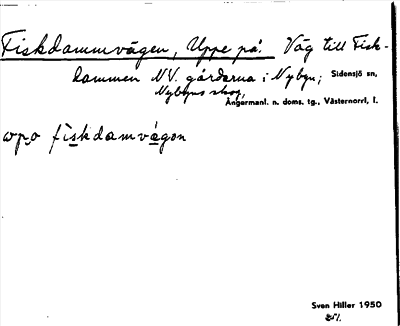 Fiskdammvägen, Uppe på. Väg till Fisk-
dammen NV. gårdarna i Nybyn; Sidensjö sn,
Nybyns skog,
Ångermanl. n. doms. tg., Västernorrl. l.
úpo fiskdamvägon
Sven Hiller 1950